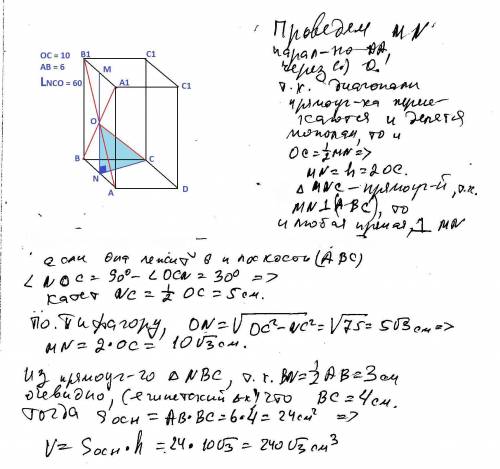 OC = 10
AB = 6
LNCO = 60
B1
C1
M
A1
C1
O
B
C
N
A
D
Проведем MN
парал-но AA,
через (·) O,
т.к. диагонали
прямоуг-ка пересе-
каются и делятся
пополам, то и
OC = ½ MN =>
MN = h = 2OC.
△ MNC - прямоуг-й, т.к.
MN ⊥ (ABC), то
и любая прямая, ⊥ MN
если она лежит в плоскости (ABC)
∠ NOC = 90° - ∠OCN = 30° =>
катет NC = ½ OC = 5 см.
По т. Пифагору, ON = √OC² - NC² = √75 = 5√3 см =>
MN = 2·OC = 10√3 см.
Из прямоуг-го △ NBC, т.к. BN = ½ AB = 3 см
очевидно, (египетский △к) что BC = 4 см.
Тогда Sосн = AB·BC = 6·4 = 24 см² =>
V = Sосн · h = 24·10√3 = 240√3 см³